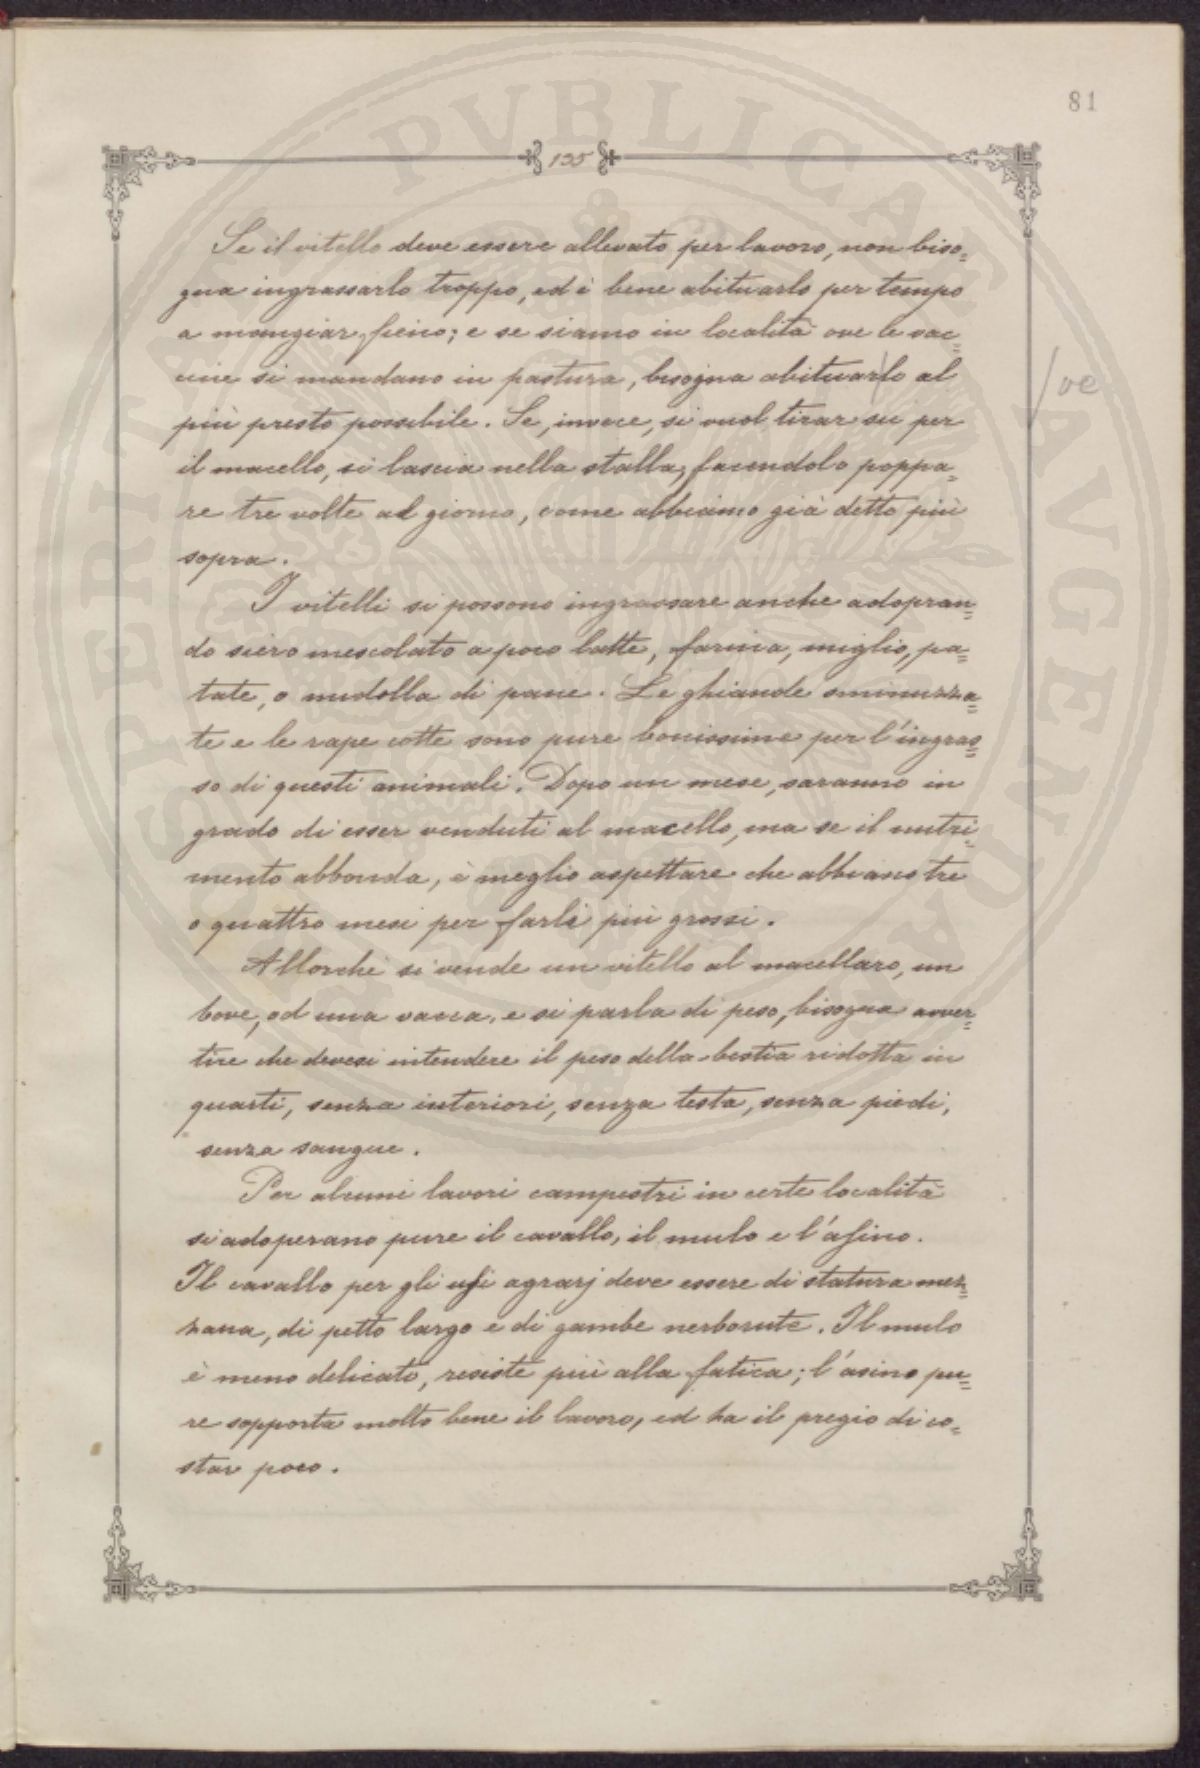 81
135
Se il vitello deve essere allevato per lavoro, non biso=
gna ingrassarlo troppo, ed è bene abituarlo per tempo
a mangiar fieno; e se siamo in località ove le vac=
cine si mandano in pastura, bisogna abituarlo al
/ve
più presto possibile. Se, invece, si vuol tirar su per
il macello, si lascia nella stalla, facendolo poppa=
re tre volte al giorno, come abbiamo già detto più
sopra.
I vitelli si possono ingrassare anche adopran=
do siero mescolato a poco latte, farina, miglio, pa=
tate, o midolla di pane. Le ghiande sminuzza=
te e le rape cotte sono pure bonissime per l'ingras=
so di questi animali. Dopo un mese, saranno in
grado di esser venduti al macello, ma se il nutri=
mento abbonda, è meglio aspettare che abbiano tre
o quattro mesi per farli più grossi.
Allorchè si vende un vitello al macellaro, un
bove, od una vacca, e si parla di peso, bisogna avver=
tire che devesi intendere il peso della bestia ridotta in
quarti, senza interiori, senza testa, senza piedi,
senza sangue.
Per alcuni lavori campestri in certe località
si adoperano pure il cavallo, il mulo e l'asino.
Il cavallo per gli usi agrarj deve essere di statura mez=
zana, di petto largo e di gambe nerborute. Il mulo
è meno delicato, resiste più alla fatica; l'asino pu=
re sopporta molto bene il lavoro, ed ha il pregio di co=
star poco.
PROSPERITATI PVBLICAE AVGENDAE